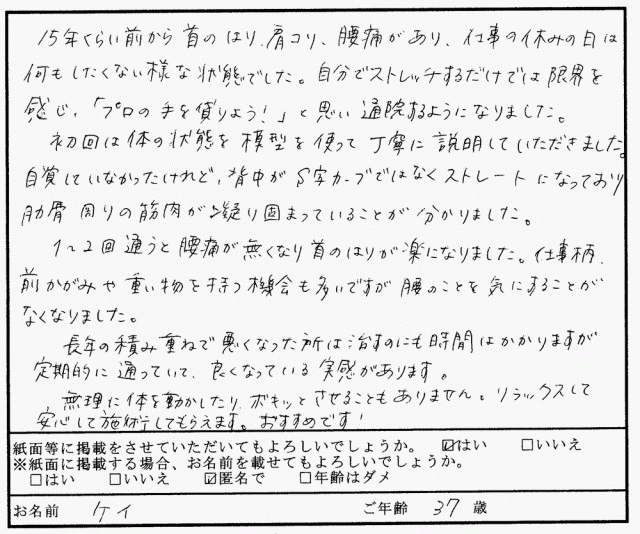 15年くらい前から首のはり、肩コリ、腰痛があり、仕事の休みの日は
何もしたくない様な状態でした。自分でストレッチするだけでは限界を
感じ、「プロの手を借りよう!」と思い通院するようになりました。
初回は体の状態を模型を使って丁寧に説明していただきました。
自覚していなかったけれど、背中がS字カーブではなくストレートになっており
肋骨周りの筋肉が凝り固まっていることが分かりました。
1~2回通うと腰痛が無くなり首のはりが楽になりました。仕事柄、
前かがみや重い物を持つ機会も多いですが腰のことを気にすることが
なくなりました。
長年の積み重ねで悪くなった所は治すのにも時間はかかりますが
定期的に通っていて、良くなっている実感があります。
無理に体を動かしたり、ボキッとさせることもありません。リラックスして
安心して施術してもらえます。おすすめです!
紙面等に掲載をさせていただいてもよろしいでしょうか。 ☑はい □いいえ
※紙面に掲載する場合、お名前を載せてもよろしいでしょうか。
□はい □いいえ ☑匿名で □年齢はダメ
お名前 ケイ ご年齢 37 歳